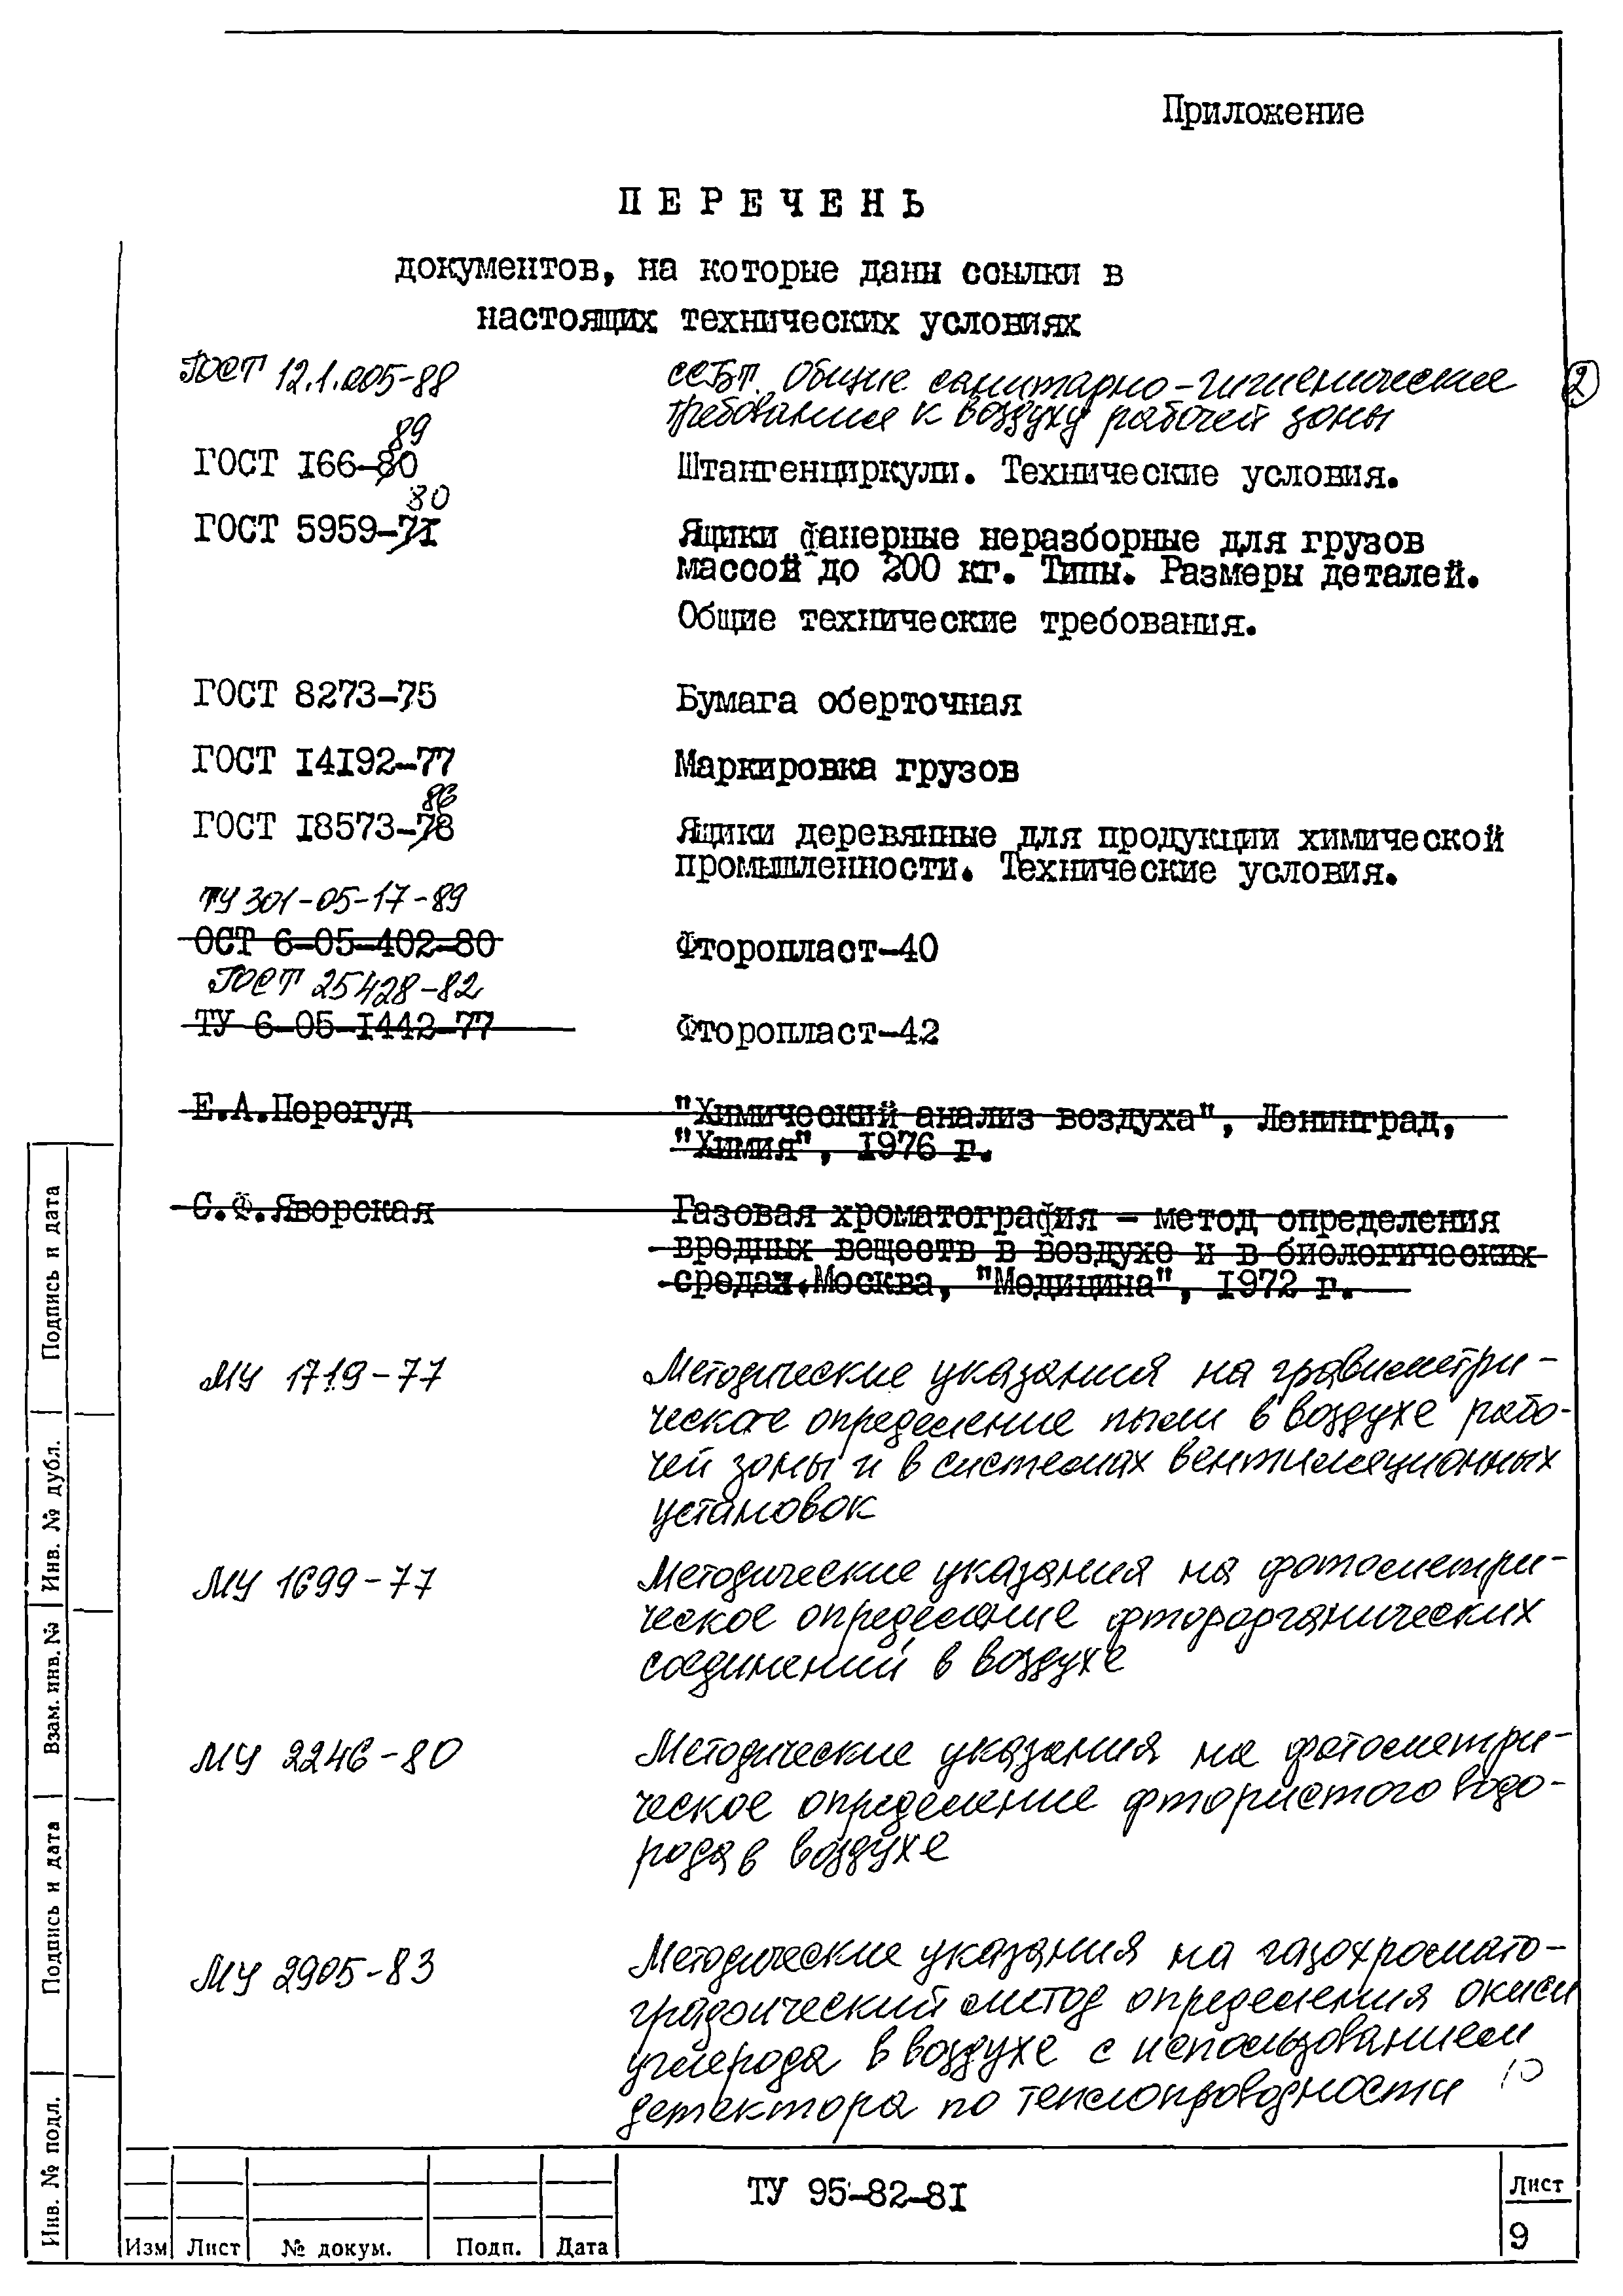 Приложение
ПЕРЕЧЕНЬ
документов, на которые даны ссылки в
настоящих технических условиях
ГОСТ 12.1.005-88 ССБТ. Общие санитарно-гигиенические 2
требования к воздуху рабочей зоны
89
ГОСТ 166-80 Штангенциркули. Технические условия.
80
ГОСТ 5959-71 Ящики фанерные неразборные для грузов
массой до 200 кг. Типы. Размеры деталей.
Общие технические требования.
ГОСТ 8273-75 Бумага оберточная
ГОСТ 14192-77 Маркировка грузов
86
ГОСТ 18573-78 Ящики деревянные для продукции химической
промышленности. Технические условия.
ТУ 301-05-17-89
ОСТ 6-05-402-80 Фторопласт-40
ГОСТ 25428-82
ТУ 6-05-1442-77 Фторопласт-42
Е.А.Перегуд "Химический анализ воздуха", Ленинград,
"Химия", 1976 г.
С.Ф.Яворская Газовая хроматография - метод определения
вредных веществ в воздухе и в биологических
средах.Москва, "Медицина", 1972 г.
МУ 1719-77 Методические указания на гравиметри-
ческое определение пыли в воздухе рабо-
чей зоны и в системах вентиляционных
установок
МУ 1699-77 Методические указания на фотометри-
ческое определение фторорганических
соединений в воздухе
МУ 2246-80 Методические указания на фотометри-
ческое определение фтористого водо-
рода в воздухе
МУ 2905-83 Методические указания на газохромато-
графический метод определения окиси
углерода в воздухе с использованием
детектора по теплопроводности 10
Подпись и дата
Инв. № дубл.
Взам. инв. №
Подпись и дата
Инв. № подл.
ТУ 95-82-81
Лист
9
Изм Лист № докум. Подп. Дата